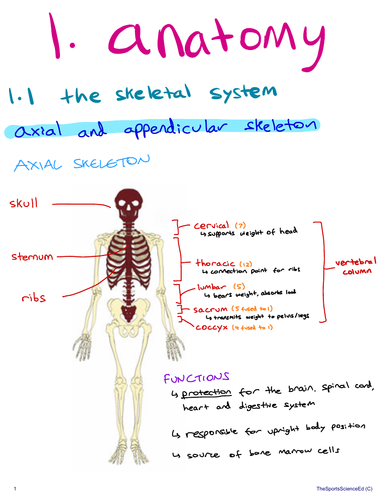 1. anatomy
1.1 the skeletal system
axial and appendicular skeleton
AXIAL SKELETON
skull
sternum
ribs
cervical (7)
↳ supports weight of head
thoracic (12)
↳ connection point for ribs
lumbar (5)
↳ bears weight, absorbs load
sacrum (5 fused to 1)
↳ transmits weight to pelvis/legs
coccyx (4 fused to 1)
vertebral
column
FUNCTIONS
↳ protection for the brain, spinal cord,
heart and digestive system
↳ responsible for upright body position
↳ source of bone marrow cells
1
TheSportsScienceEd (C)